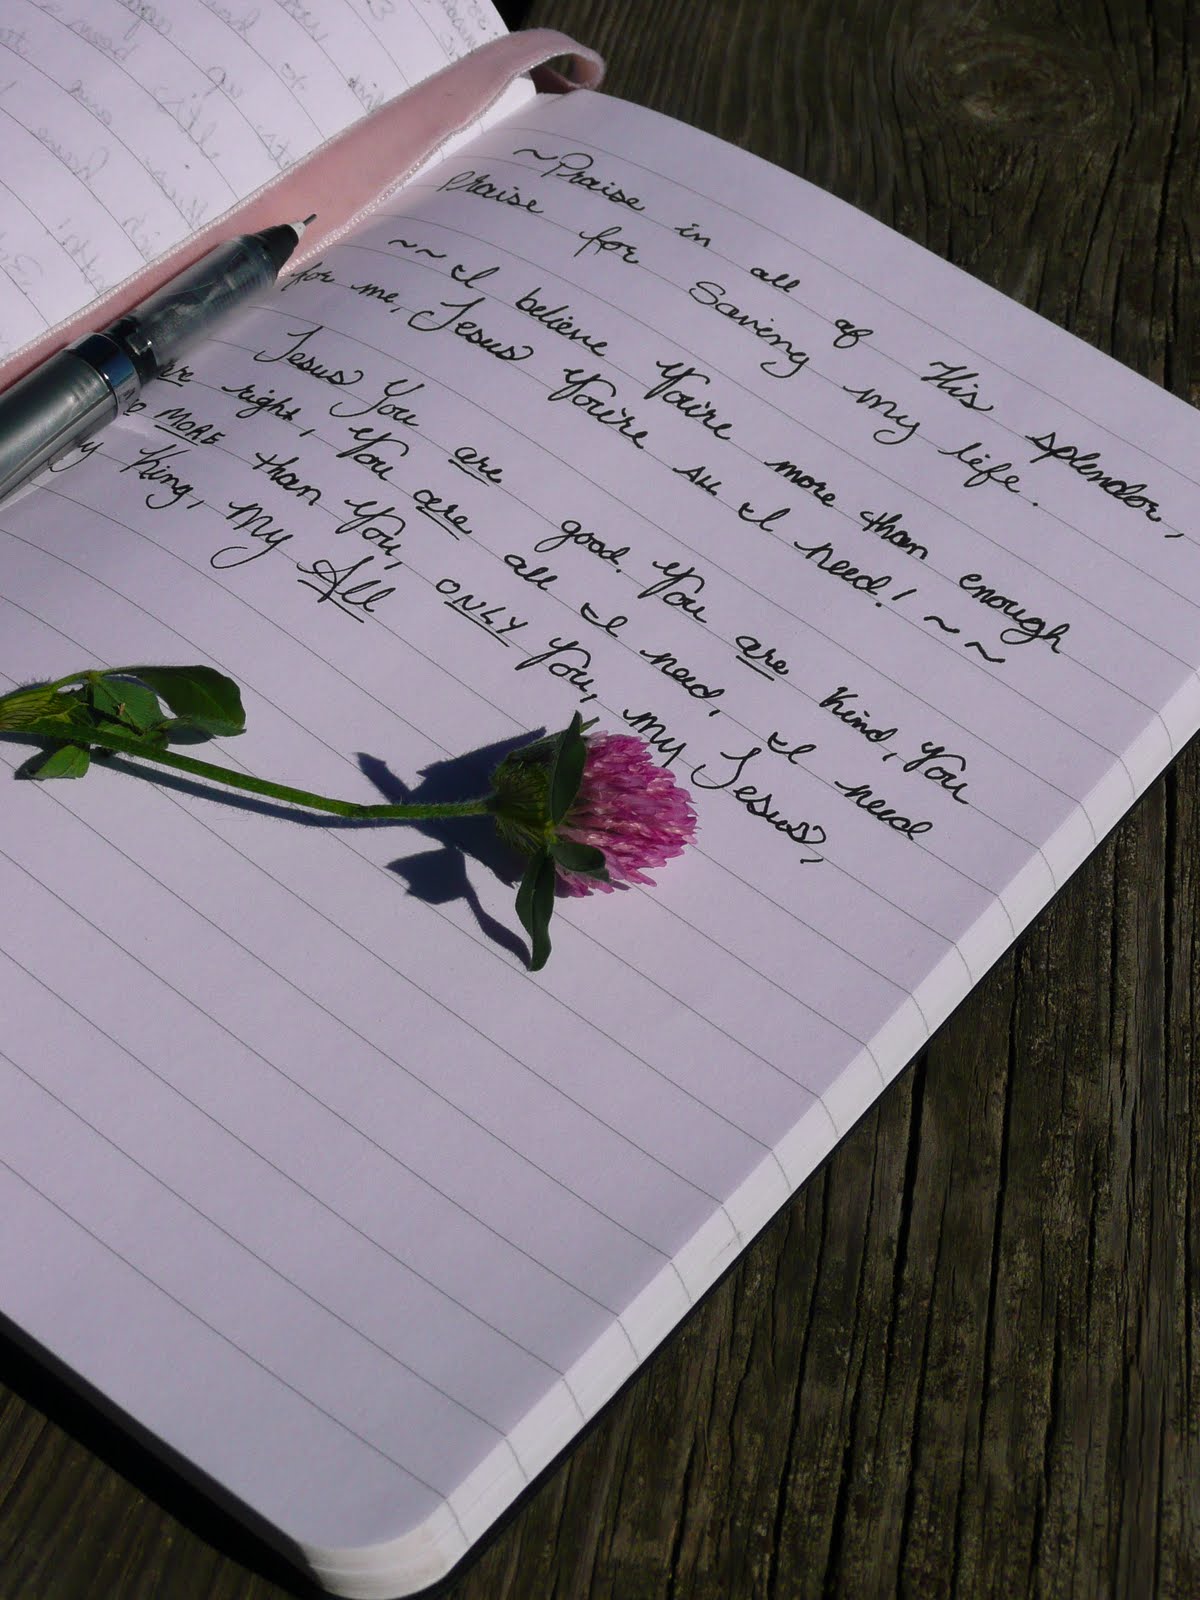 ~Praise in all of His splendor,
praise for Saving my life.
~~I believe You're more than enough
for me, Jesus You're All I need! ~~
Jesus You are good. You are kind, You
are right, You are all I need, I need
no MORE than You, ONLY You, my Jesus,
my King, My All